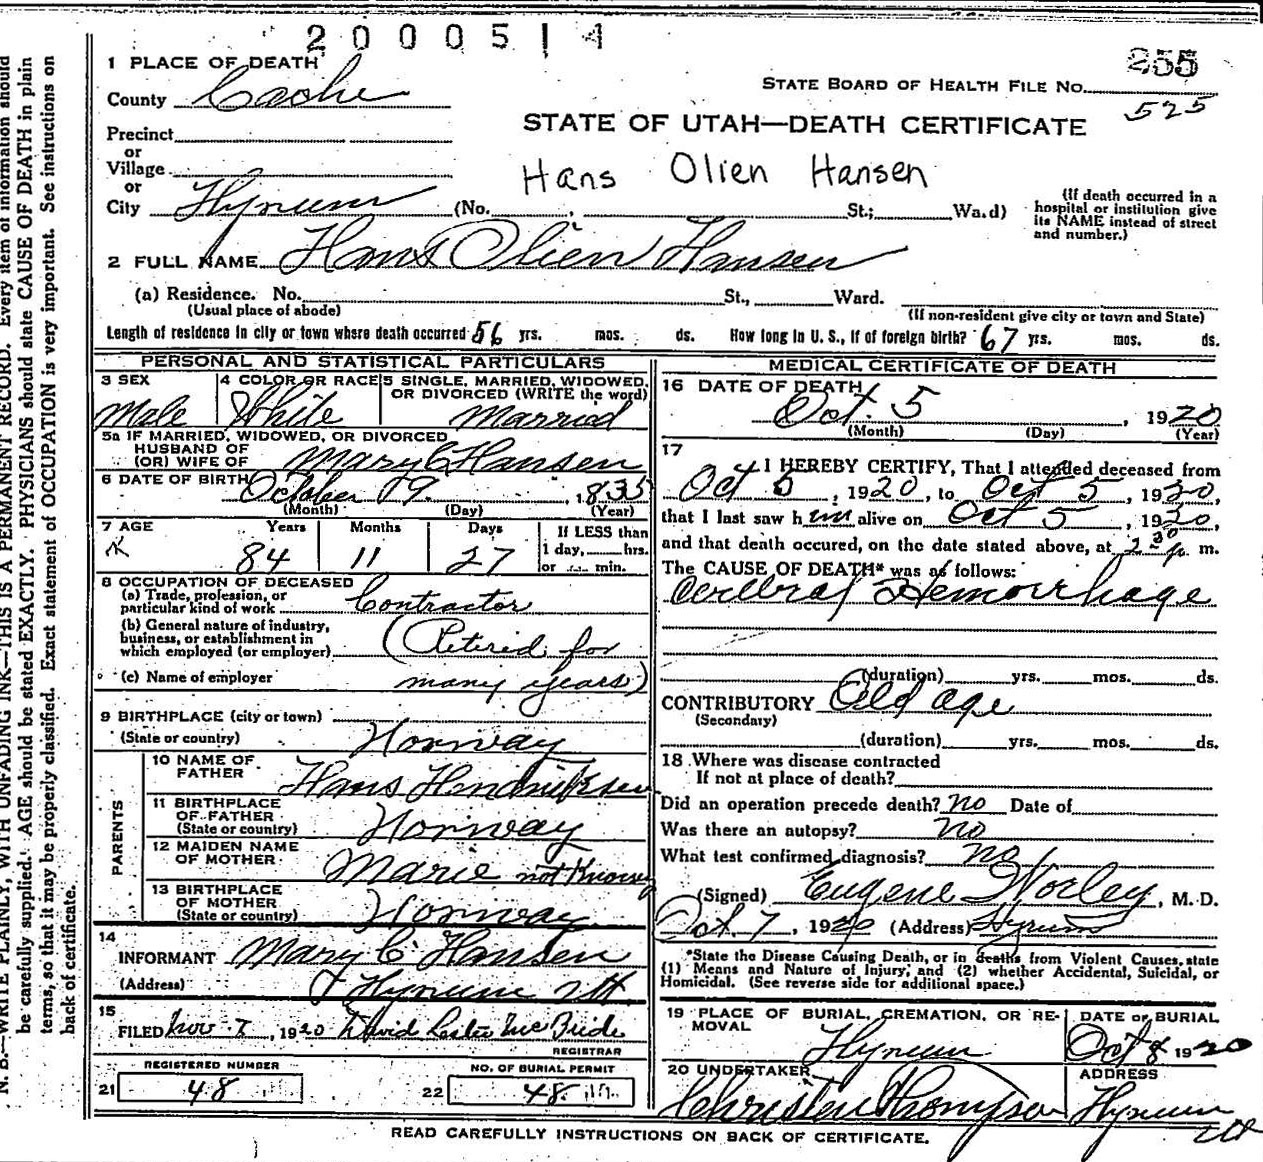 2000514
255
1 PLACE OF DEATH
STATE BOARD OF HEALTH FILE NO.
525
County Cache
STATE OF UTAH—DEATH CERTIFICATE
Precinct
or
Village
or
Hans Olien Hansen
City Hyrum (No. , St.; Wa.d)
(If death occurred in a
hospital or institution give
its NAME instead of street
and number.)
2 FULL NAME Hans Olien Hansen
(a) Residence. No. St., Ward.
(Usual place of abode)
(If non-resident give city or town and State)
Length of residence in city or town where death occurred 56 yrs. mos. ds. How long in U. S., if of foreign birth? 67 yrs. mos. ds.
PERSONAL AND STATISTICAL PARTICULARS
3 SEX
Male
4 COLOR OR RACE
White
5 SINGLE, MARRIED, WIDOWED,
OR DIVORCED (WRITE the word)
Married
5a IF MARRIED, WIDOWED, OR DIVORCED
HUSBAND OF
(OR) WIFE OF Mary C Hansen
6 DATE OF BIRTH October 9. , 1835
(Month) (Day) (Year)
7 AGE Years Months Days
84 11 27
If LESS than
1 day, hrs.
or min.
8 OCCUPATION OF DECEASED
(a) Trade, profession, or
particular kind of work Contractor
(b) General nature of industry,
business, or establishment in
which employed (or employer) (Retired for
(c) Name of employer many years)
9 BIRTHPLACE (city or town)
(State or country) Norway
PARENTS
10 NAME OF
FATHER Hans Hendriksen
11 BIRTHPLACE
OF FATHER
(State or country) Norway
12 MAIDEN NAME
OF MOTHER Marie not Known
13 BIRTHPLACE
OF MOTHER
(State or country) Norway
14
INFORMANT Mary C Hansen
(Address) Hyrum Ut.
15
FILED Nov. 7, 1920 David Leslie McBride
REGISTRAR
REGISTERED NUMBER
21 48
NO. OF BURIAL PERMIT
22 48
MEDICAL CERTIFICATE OF DEATH
16 DATE OF DEATH
Oct. 5 , 1920
(Month) (Day) (Year)
17
I HEREBY CERTIFY, That I attended deceased from
Oct 5, 1920, to Oct 5, 1920,
that I last saw him alive on Oct 5, 1920,
and that death occured, on the date stated above, at 2-30 p. m.
The CAUSE OF DEATH* was as follows:
Cerebral Hemorrhage
(duration) yrs. mos. ds.
CONTRIBUTORY Old age
(Secondary)
(duration) yrs. mos. ds.
18 Where was disease contracted
If not at place of death?
Did an operation precede death? no Date of
Was there an autopsy? no
What test confirmed diagnosis? no
(Signed) Eugene Worley, M. D.
Oct. 7, 1920 (Address) Hyrum
*State the Disease Causing Death, or in deaths from Violent Causes, state
(1) Means and Nature of Injury; and (2) whether Accidental, Suicidal, or
Homicidal. (See reverse side for additional space.)
19 PLACE OF BURIAL, CREMATION, OR RE-
MOVAL
Hyrum
DATE of BURIAL
Oct 8 1920
20 UNDERTAKER
Christen Thompson
ADDRESS
Hyrum
Ut
READ CAREFULLY INSTRUCTIONS ON BACK OF CERTIFICATE.
N. B.—WRITE PLAINLY, WITH UNFADING INK—THIS IS A PERMANENT RECORD. Every item of information should
be carefully supplied. AGE should be stated EXACTLY. PHYSICIANS should state CAUSE OF DEATH in plain
terms, so that it may be properly classified. Exact statement of OCCUPATION is very important. See instructions on
back of certificate.